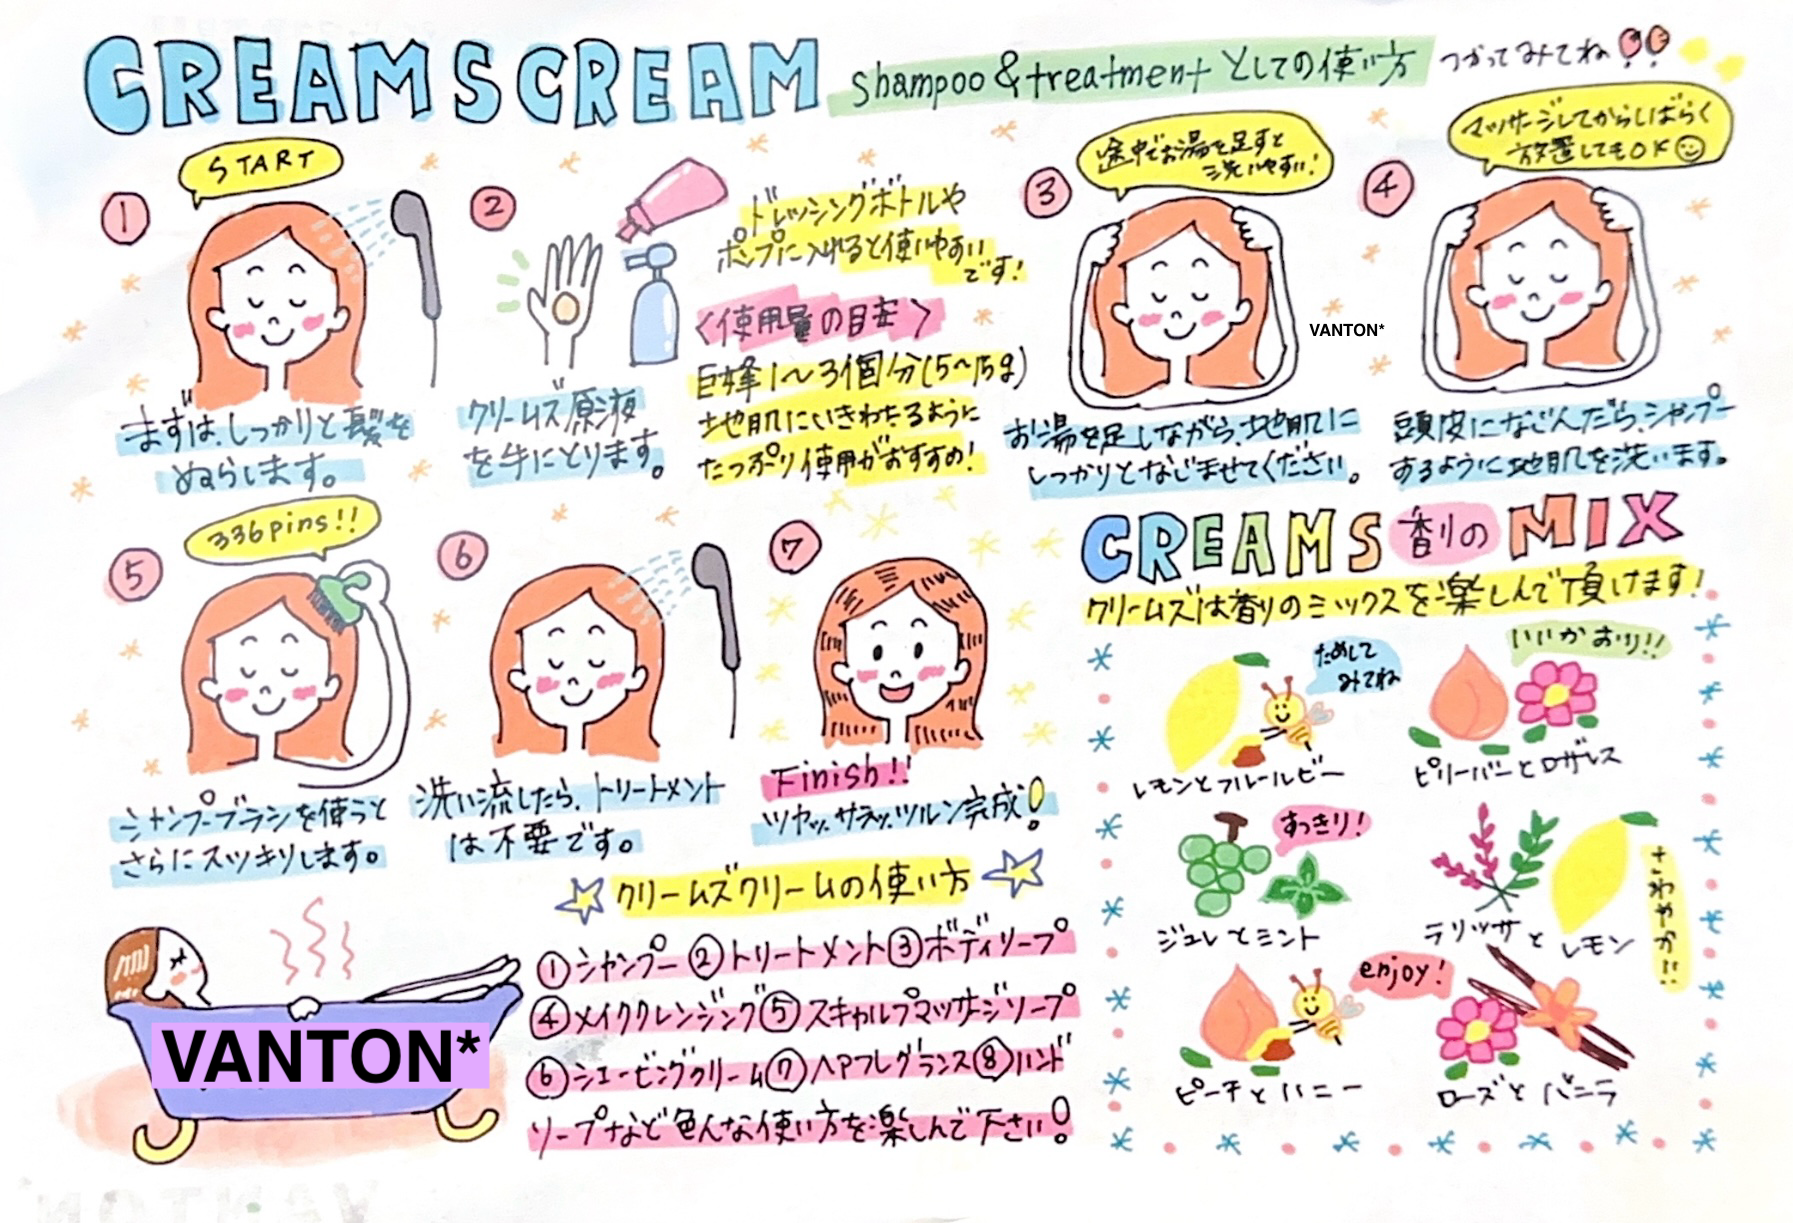 CREAMSCREAM
shampoo&treatment としての使い方
つかってみてね!!
START
①
まずは、しっかりと髪を
ぬらします。
②
クリームズ原液
を手にとります。
ドレッシングボトルや
ポンプに入れると使いやすい
です!
〈使用量の目安〉
巨峰1〜3個分(5〜15g)
地肌にいきわたるように
たっぷり使用がおすすめ!
③
途中でお湯を足すと
洗いやすい!
お湯を足しながら、地肌に
しっかりとなじませてください。
VANTON*
④
マッサージしてからしばらく
放置してもOK
頭皮になじんだら、シャンプー
するように地肌を洗います。
⑤
336pins!!
シャンプーブラシを使うと
さらにスッキリします。
⑥
洗い流したら、トリートメント
は不要です。
⑦
Finish!!
ツヤッ、サラッ、ツルン完成!
クリームズクリームの使い方
①シャンプー②トリートメント③ボディソープ
④メイククレンジング⑤スキャルプマッサージソープ
⑥シェービングクリーム⑦ヘアフレグランス⑧ハンド
ソープなど色んな使い方を楽しんで下さい!
VANTON*
CREAMS香りのMIX
クリームズは香りのミックスを楽しんで頂けます!
ためして
みてね
レモンとフルールビー
いいかおり!!
ピリーバーとロザレス
すっきり!
ジュレとミント
さわやか!!
ラリッサとレモン
enjoy!
ピーチとハニー
ローズとバニラ